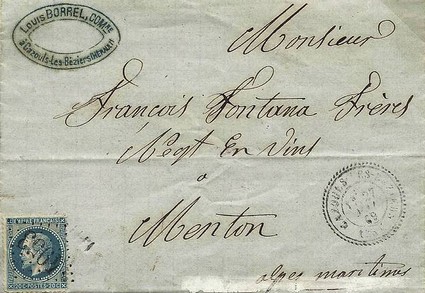 Louis BORREL, COM^RE
à Cazouls-Les-Béziers (HÉRAULT)
Monsieur
François Fontana Frères
Negt En Vins
à
Menton
alpes maritimes
CAZOULS-
69
EMPIRE FRANÇAIS
20C POSTES 20C